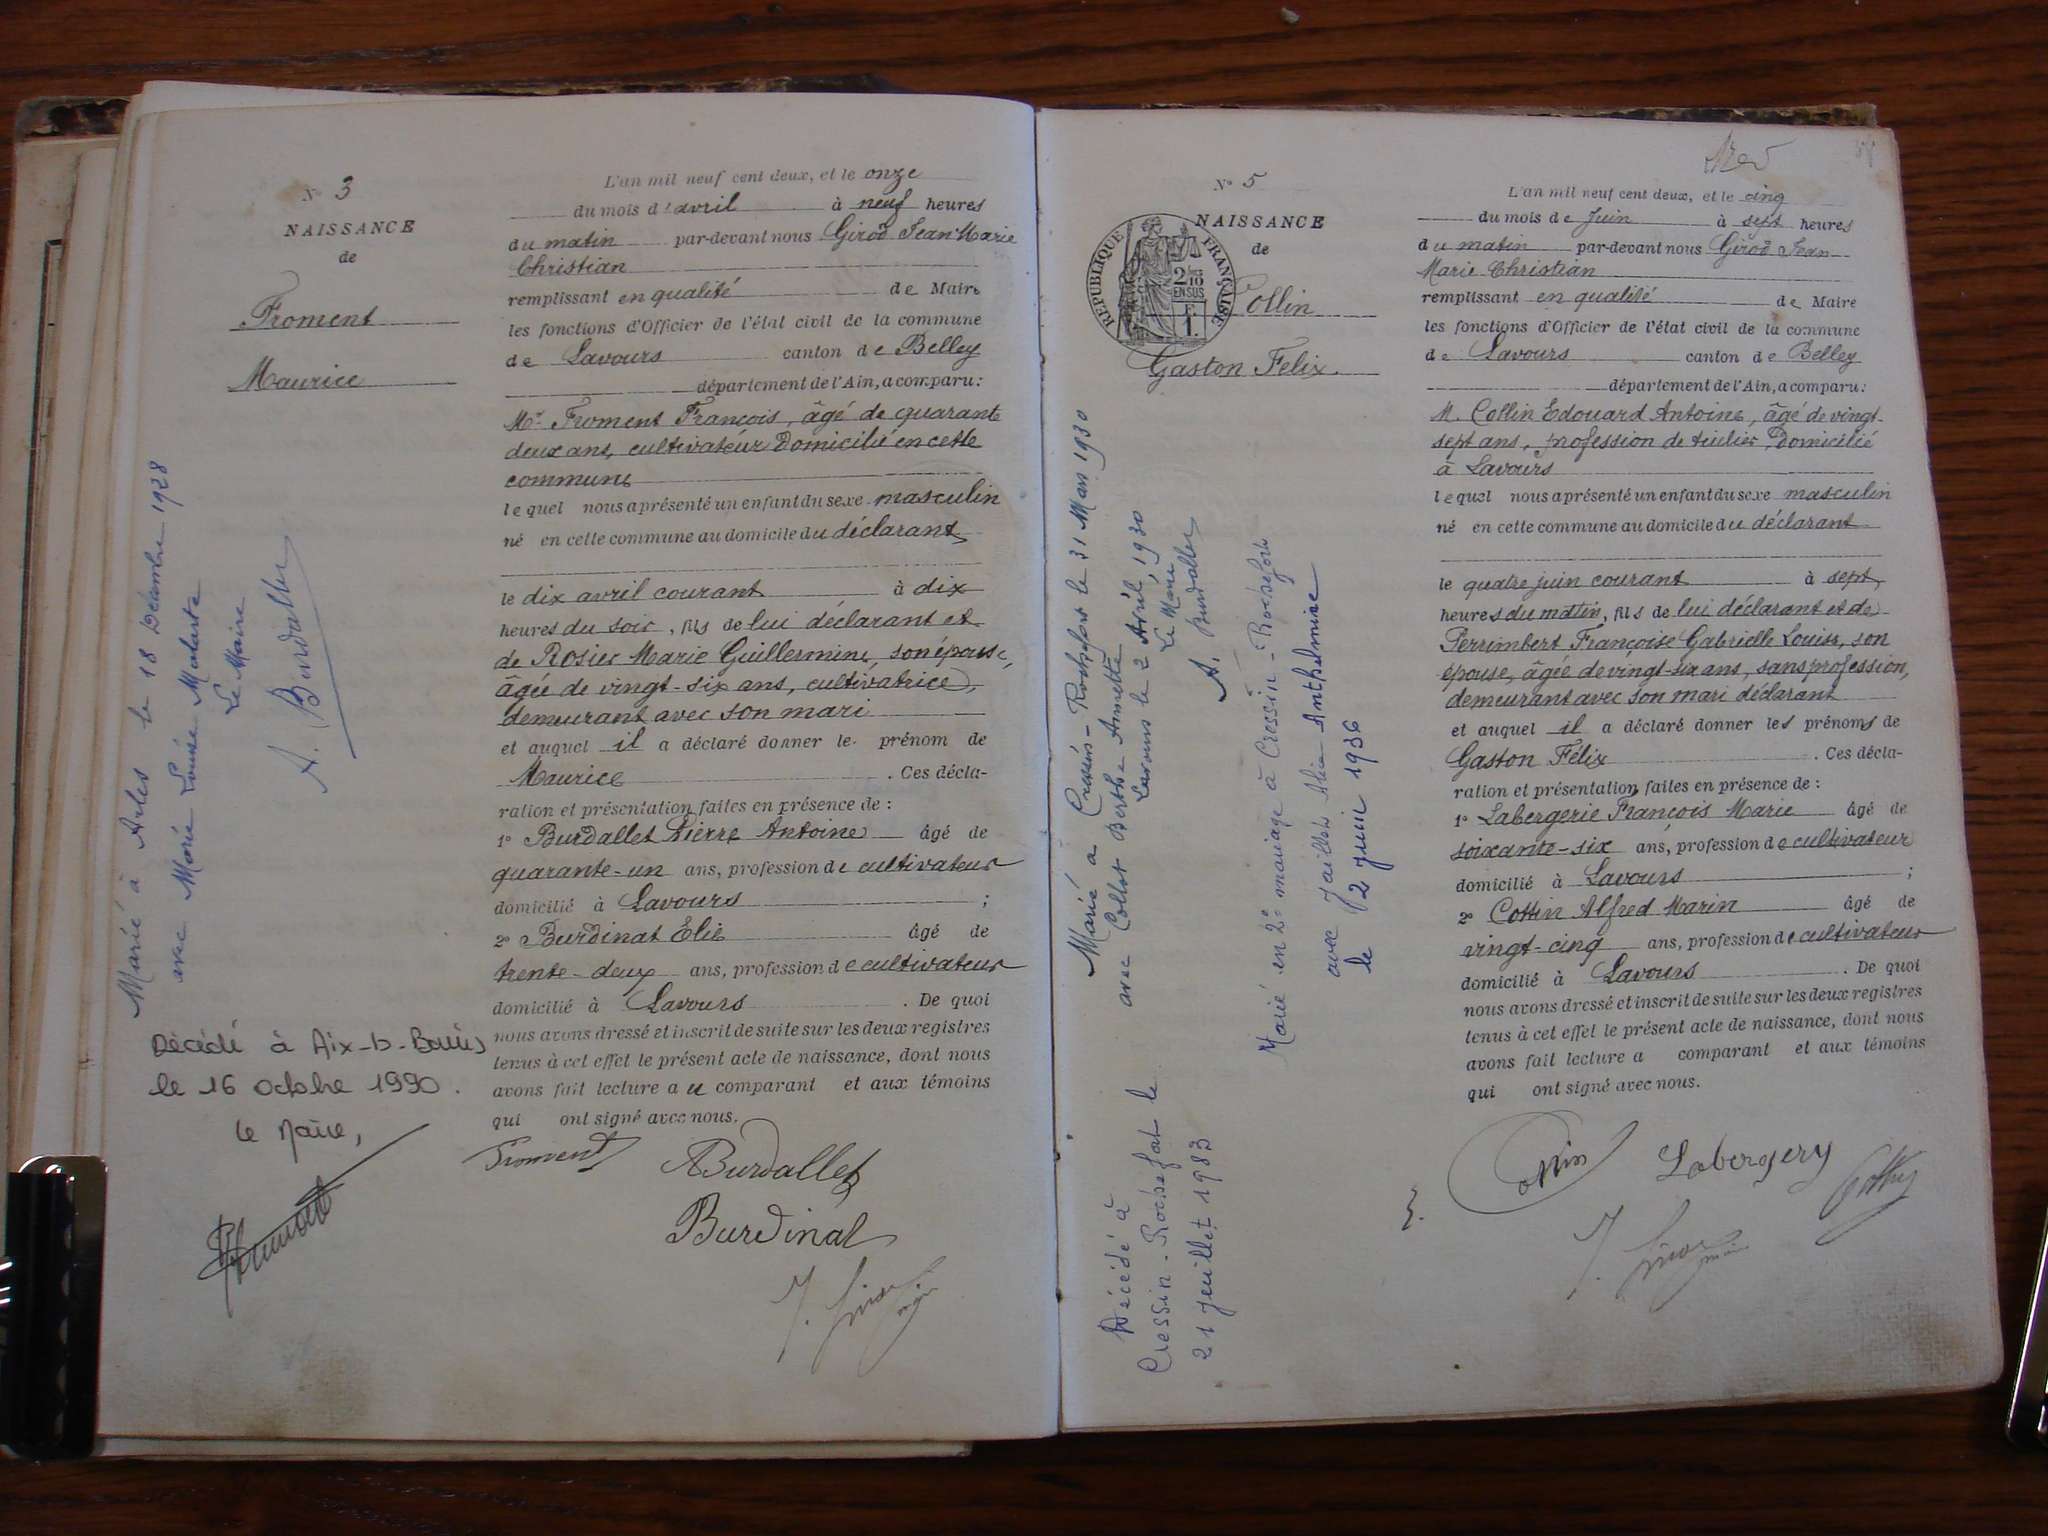 N° 3
NAISSANCE
de
Froment
Maurice
Marié à Arles le 18 Décembre 1928
avec Marie Louise
Le Maire
A. Burdallet
Décédé à Aix-ls-Bains
le 16 octobre 1990.
Le Maire,
L'an mil neuf cent deux, et le onze
du mois d'avril à neuf heures
du matin par-devant nous Girod Jean Marie
Christian
remplissant en qualité de Maire
les fonctions d'Officier de l'état civil de la commune
de Lavours canton de Belley
département de l'Ain, a comparu:
Mr Froment François, âgé de quarante
deux ans, cultivateur Domicilié en cette
commune
lequel nous a présenté un enfant du sexe masculin
né en cette commune au domicile du déclarant
le dix avril courant à dix
heures du soir, fils de lui déclarant et
de Rosier Marie Guillermine, son épouse,
âgée de vingt-six ans, cultivatrice,
demeurant avec son mari
et auquel il a déclaré donner le prénom de
Maurice . Ces décla-
ration et présentation faites en présence de :
1° Burdallet Pierre Antoine âgé de
quarante-un ans, profession de cultivateur
domicilié à Lavours ;
2° Burdinat Elie âgé de
trente-deux ans, profession de cultivateur
domicilié à Lavours . De quoi
nous avons dressé et inscrit de suite sur les deux registres
tenus à cet effet le présent acte de naissance, dont nous
avons fait lecture au comparant et aux témoins
qui ont signé avec nous.
Froment ABurdallet
Burdinat
J. Girod
N° 5
NAISSANCE
de
RÉPUBLIQUE FRANÇAISE
2/10
EN SUS
F.
1.
Collin
Gaston Felix.
Marié à Cressin-Rochefort le 31 Mars 1930
avec Collet Berthe Annette
Lavours le 2 Avril 1930
Le Maire
A. Burdallet
Marié en 2e mariage à Cressin-Rochefort
avec Jaillet Alice Anthelmine
le 2 juin 1936
Décédé à
Cressin-Rochefort le
21 juillet 1983
L'an mil neuf cent deux, et le cinq
du mois de Juin à sept heures
du matin par-devant nous Girod Jean
Marie Christian
remplissant en qualité de Maire
les fonctions d'Officier de l'état civil de la commune
de Lavours canton de Belley
département de l'Ain, a comparu:
M. Collin Edouard Antoine, âgé de vingt-
sept ans, profession de tuilier, Domicilié
à Lavours
lequel nous a présenté un enfant du sexe masculin
né en cette commune au domicile du déclarant
le quatre juin courant à sept
heures du matin, fils de lui déclarant et de
Perrimbert Françoise Gabrielle Louise, son
épouse, âgée de vingt-six ans, sans profession,
demeurant avec son mari déclarant
et auquel il a déclaré donner les prénoms de
Gaston Félix . Ces décla-
ration et présentation faites en présence de :
1° Labergerie François Marie âgé de
soixante-six ans, profession de cultivateur
domicilié à Lavours ;
2° Cottin Alfred Marin âgé de
vingt-cinq ans, profession de cultivateur
domicilié à Lavours . De quoi
nous avons dressé et inscrit de suite sur les deux registres
tenus à cet effet le présent acte de naissance, dont nous
avons fait lecture a comparant et aux témoins
qui ont signé avec nous.
Labergery
J. Girod